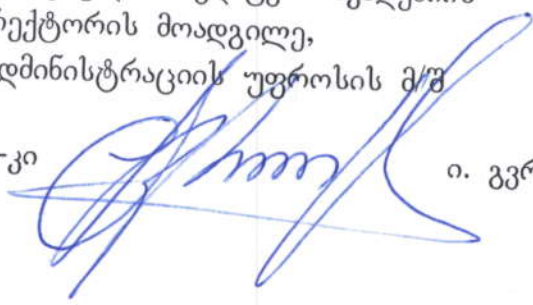 რექტორის მოადგილე,
დმინისტრაციის უფროსის მ/შ
-კი ი. გვრ